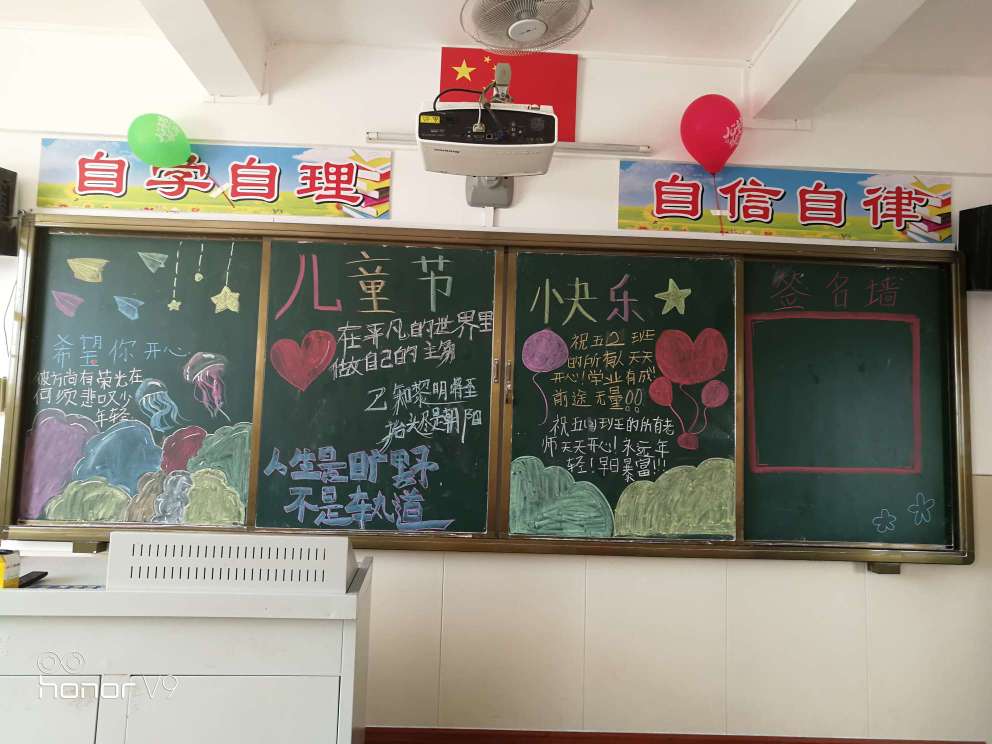 自学自理
自信自律
儿童节
快乐
签名墙
希望你开心
彼方尚有荣光在
何须悲叹少
年轻
在平凡的世界里
做自己的主角
已知黎明将至
抬头尽是朝阳
人生是旷野
不是轨道
祝五2班
的所有人天天
开心!学业有成
前途无量!!
祝五2班的所有老
师天天开心!永远年
轻!早日暴富!!!
honor V9